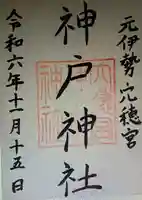 元伊勢 穴穂宮
神戸神社
令和六年十一月十五日